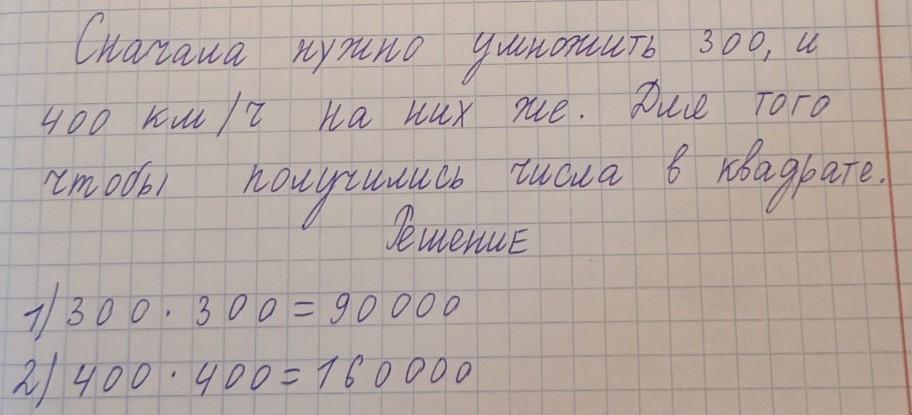 Сначала нужно умножить 300, и
400 км/ч на них же. Для того
чтобы получились числа в квадрате.
Решение
1) 300 · 300 = 90000
2) 400 · 400 = 160000